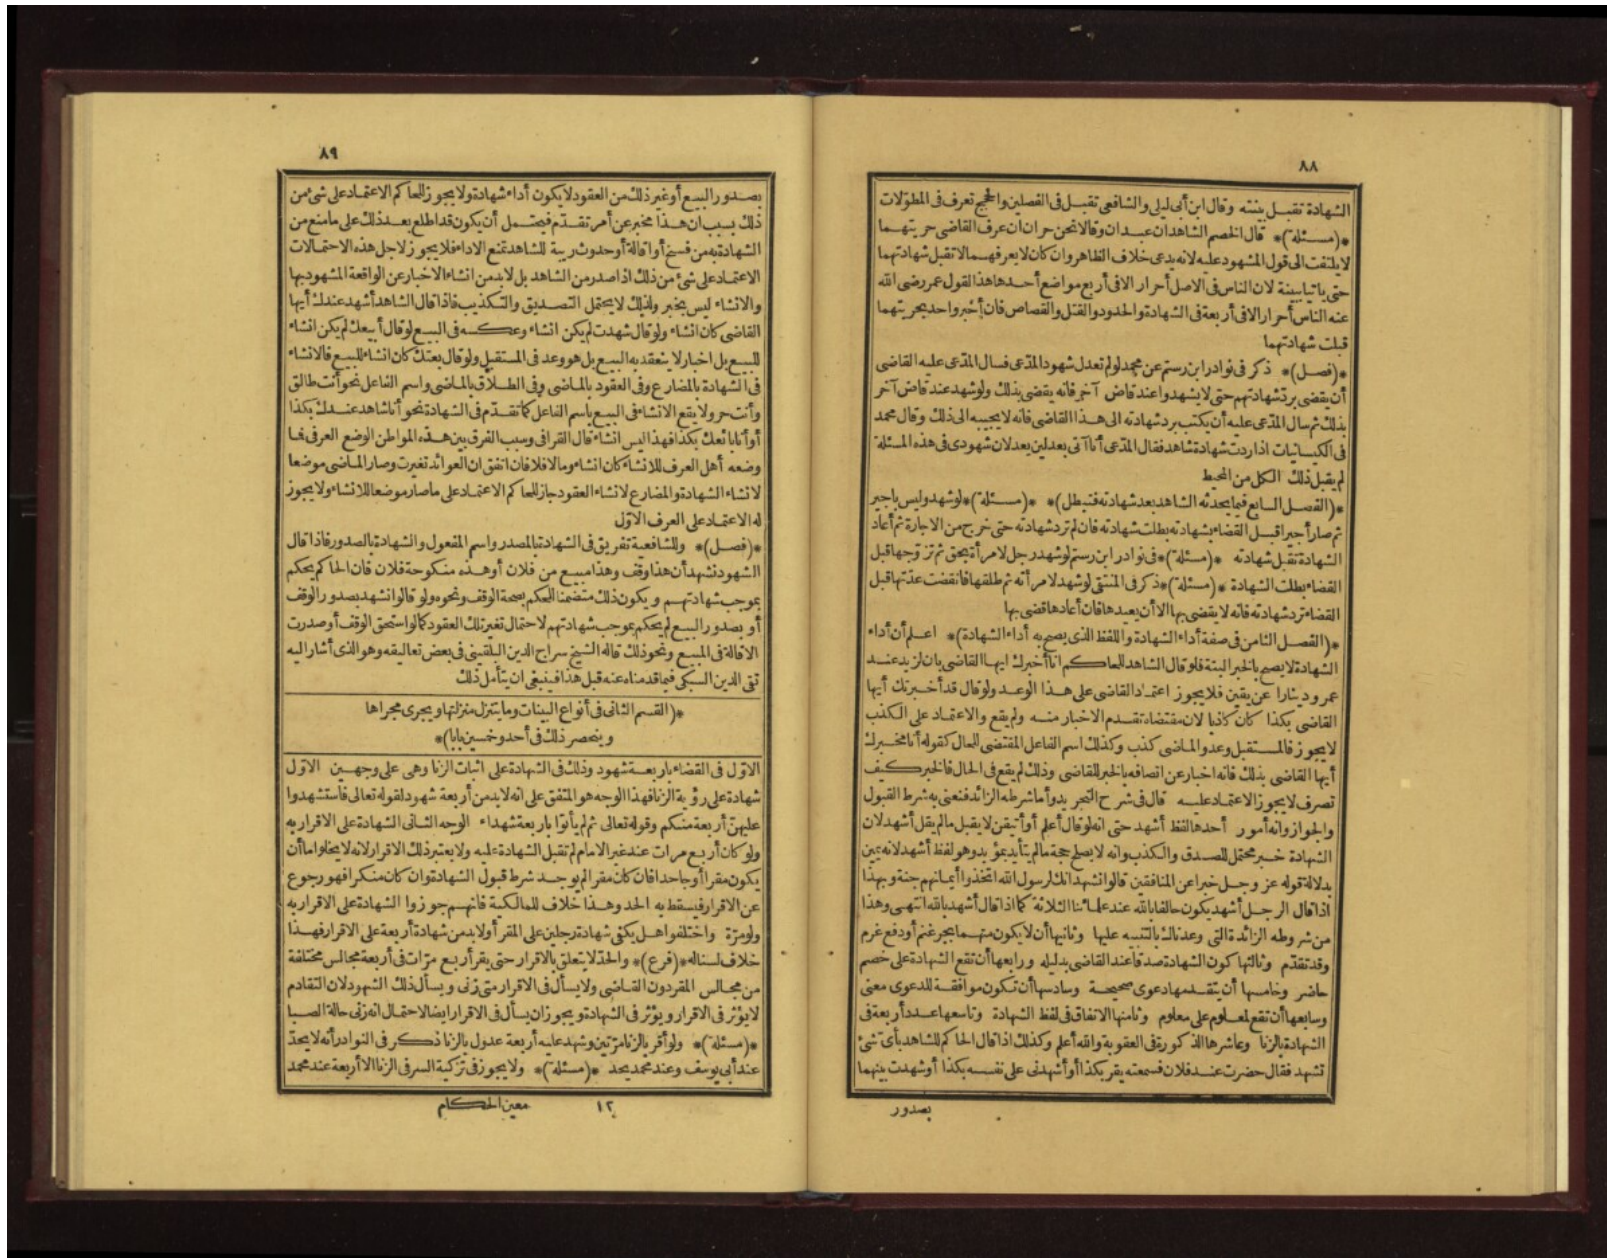 ٨٨
الشهادة تقبل بينته وقال ابن أبي ليلى والشافعي تقبل في الفصلين والحجج تعرف في المطوّلات
*(مسئلة)* قال الخصم الشاهدان عبدان وقالا نحن حران ان عرف القاضى حريتهما
لا يلتفت الى قول المشهود عليه لانه يدعى خلاف الظاهر وان كان لا يعرفهما لا تقبل شهادتهما
حتى يأتيا ببينة لان الناس فى الاصل أحرار الا فى أربع مواضع أحدها هذا القول عمر رضى الله
عنه الناس أحرار الا فى أربعة فى الشهادة والحدود والقتل والقصاص فان أخبر واحد بحريتهما
قبلت شهادتهما
*(فصل)* ذكر فى نوادر ابن رستم عن محمد لو لم تعدل شهود المدّعى فسال المدّعى عليه القاضى
أن يقضى بردّ شهادتهم حتى لا يشهدوا عند قاض آخر فانه يقضى بذلك ولو شهد عند قاض آخر
بذلك ثم سال المدّعى عليه أن يكتب برد شهادته الى هذا القاضى فانه لا يجيبه الى ذلك وقال محمد
فى الكيسانيات اذا ردت شهادة شاهد فقال المدّعى أنا آتى بعدلين يعدلان شهودى فى هذه المسئلة
لم يقبل ذلك الكل من المحيط
*(الفصل السابع فيما يحدثه الشاهد بعد شهادته فتبطل)* *(مسئلة)* لو شهد وليس باجير
ثم صار أجيرا قبل القضاء بشهادته بطلت شهادته فان لم ترد شهادته حتى خرج من الاجارة ثم أعاد
الشهادة تقبل شهادته *(مسئلة)* فى نوادر ابن رستم لو شهد رجل لامرأة بحق ثم تزوّجها قبل
القضاء بطلت الشهادة *(مسئلة)* ذكر فى المنتقى لو شهد لامرأته ثم طلقها فانقضت عدّتها قبل
القضاء ترد شهادته فانه لا يقضى بها الا أن يعيدها فان أعادها قضى بها
*(الفصل الثامن فى صفة أداء الشهادة واللفظ الذى يصح به أداء الشهادة)* اعلم أن أداء
الشهادة لا يصح بالخبر البتة فلو قال الشاهد للحاكم انا أخبرك ايها القاضى بان لزيد عند
عمرو دينارا عن يقين فلا يجوز اعتماد القاضى على هذا الوعد ولو قال قد أخبرتك أيها
القاضى بكذا كان كاذبا لان مقتضاه تقدم الاخبار منه ولم يقع والاعتماد على الكذب
لا يجوز فالمستقبل وعد والماضى كذب وكذلك اسم الفاعل المقتضى للحال كقوله أنا مخبرك
أيها القاضى بذلك فانه اخبار عن اتصافه بالخبر للقاضى وذلك لم يقع فى الحال فالخبر كيف
تصرف لا يجوز الاعتماد عليه قال فى شرح التجريد وأما شرطه الزائد فنعنى به شرط القبول
والجواز وانه أمور أحدها لفظ أشهد حتى انه لو قال أعلم أو أتيقن لا يقبل ما لم يقل أشهد لان
الشهادة خبر محتمل للصدق والكذب وانه لا يصلح حجة ما لم يتأيد بمؤيد وهو لفظ أشهد لانه يمين
بدلالة قوله عز وجل خبرا عن المنافقين قالوا نشهد انك لرسول الله اتخذوا أيمانهم جنة وبهذا
اذا قال الرجل أشهد يكون حالفا بالله عند علمائنا الثلاثة كما اذا قال أشهد بالله انتهى وهذا
من شروطه الزائدة التى وعدناك بالتنبيه عليها وثانيها أن لا يكون متهما بجر غنم أو دفع غرم
وقد تقدّم وثالثها كون الشهادة صدقا عند القاضى بدليله ورابعها أن تقع الشهادة على خصم
حاضر وخامسها أن يتقدمها دعوى صحيحة وسادسها أن تكون موافقة للدعوى معنى
وسابعها أن تقع لمعلوم على معلوم وثامنها الاتفاق فى لفظ الشهادة وتاسعها عدد أربعة فى
الشهادة بالزنا وعاشرها الذكورة فى العقوبة والله أعلم وكذلك اذا قال الحاكم للشاهد بأى شئ
تشهد فقال حضرت عند فلان فسمعته يقر بكذا أو أشهدنى على نفسه بكذا أو شهدت بينهما
بصدور
٨٩
بصدور البيع أو غير ذلك من العقود لا يكون أداء شهادة ولا يجوز للحاكم الاعتماد على شئ من
ذلك بسبب ان هذا مخبر عن أمر تقدّم فيحتمل أن يكون قد اطلع بعد ذلك على ما منع من
الشهادة به من فسخ أو اقالة أو حدوث ريبة للشاهد تمنع الاداء فلا يجوز لاجل هذه الاحتمالات
الاعتماد على شئ من ذلك اذا صدر من الشاهد بل لابد من انشاء الاخبار عن الواقعة المشهود بها
والانشاء ليس بخبر ولذلك لا يحتمل التصديق والتكذيب فاذا قال الشاهد أشهد عندك أيها
القاضى كان انشاء ولو قال شهدت لم يكن انشاء وعكسه فى البيع لو قال أبيعك لم يكن انشاء
للبيع بل اخبار لا ينعقد به البيع بل هو وعد فى المستقبل ولو قال بعتك كان انشاء للبيع فالانشاء
فى الشهادة بالمضارع وفى العقود بالماضى وفى الطلاق بالماضى واسم الفاعل نحو أنت طالق
وأنت حر ولا يقع الانشاء فى البيع باسم الفاعل كما تقدّم فى الشهادة نحو أنا شاهد عندك بكذا
أو أنا بائعك بكذا فهذا ليس انشاء قال القرافى وسبب الفرق بين هذه المواطن الوضع العرفى فما
وضعه أهل العرف للانشاء كان انشاء وما لا فلا فان اتفق ان العوائد تغيرت وصار الماضى موضعا
لانشاء الشهادة والمضارع لانشاء العقود جاز للحاكم الاعتماد على ما صار موضعا للانشاء ولا يجوز
له الاعتماد على العرف الاوّل
*(فصل)* وللشافعية تفريق فى الشهادة بالمصدر واسم المفعول والشهادة بالصدور فاذا قال
الشهود نشهد أن هذا وقف وهذا مبيع من فلان أو هذه منكوحة فلان فان الحاكم يحكم
بموجب شهادتهم ويكون ذلك متضمنا للحكم بصحة الوقف ونحوه ولو قالوا نشهد بصدور الوقف
أو بصدور البيع لم يحكم بموجب شهادتهم لاحتمال تغير تلك العقود كما لو استحق الوقف أو صدرت
الاقالة فى المبيع ونحو ذلك قاله الشيخ سراج الدين البلقينى فى بعض تعاليقه وهو الذى أشار اليه
تقى الدين السبكى فيما قدمناه عنه قبل هذا فينبغى ان يتأمل ذلك
*(القسم الثانى فى أنواع البينات وما يتنزل منزلتها ويجرى مجراها
وينحصر ذلك فى أحد وخمسين بابا)*
الاوّل فى القضاء باربعة شهود وذلك فى الشهادة على اثبات الزنا وهى على وجهين الاوّل
شهادة على رؤية الزنا فهذا الوجه هو المتفق على انه لابد من أربعة شهود لقوله تعالى فاستشهدوا
عليهنّ أربعة منكم وقوله تعالى ثم لم يأتوا باربعة شهداء الوجه الثانى الشهادة على الاقرار به
ولو كان أربع مرات عند غير الامام لم تقبل الشهادة عليه ولا يعتبر ذلك الاقرار لانه لا يخلو اما أن
يكون مقرا أو جاحدا فان كان مقرا لم يوجد شرط قبول الشهادة وان كان منكرا فهو رجوع
عن الاقرار فيسقط به الحد وهذا خلاف للمالكية فانهم جوزوا الشهادة على الاقرار به
ولو مرّة واختلفوا هل يكفى شهادة رجلين على المقر أو لابد من شهادة أربعة على الاقرار فهذا
خلاف لسناله *(فرع)* والحدّ لا يتعلق بالاقرار حتى يقر أربع مرّات فى أربعة مجالس مختلفة
من مجالس المقر دون القاضى ولا يسأل فى الاقرار متى زنى ويسأل ذلك الشهود لان التقادم
لا يؤثر فى الاقرار ويؤثر فى الشهادة ويجوز ان يسأل فى الاقرار ايضا لاحتمال انه زنى حالة الصبا
*(مسئلة)* ولو أقر بالزنا مرّتين وشهد عليه أربعة عدول بالزنا ذكر فى النوادر أنه لا يحدّ
عند أبى يوسف وعند محمد يحد *(مسئلة)* ولا يجوز فى تزكية السر فى الزنا الا أربعة عند محمد
١٢ معين الحكام